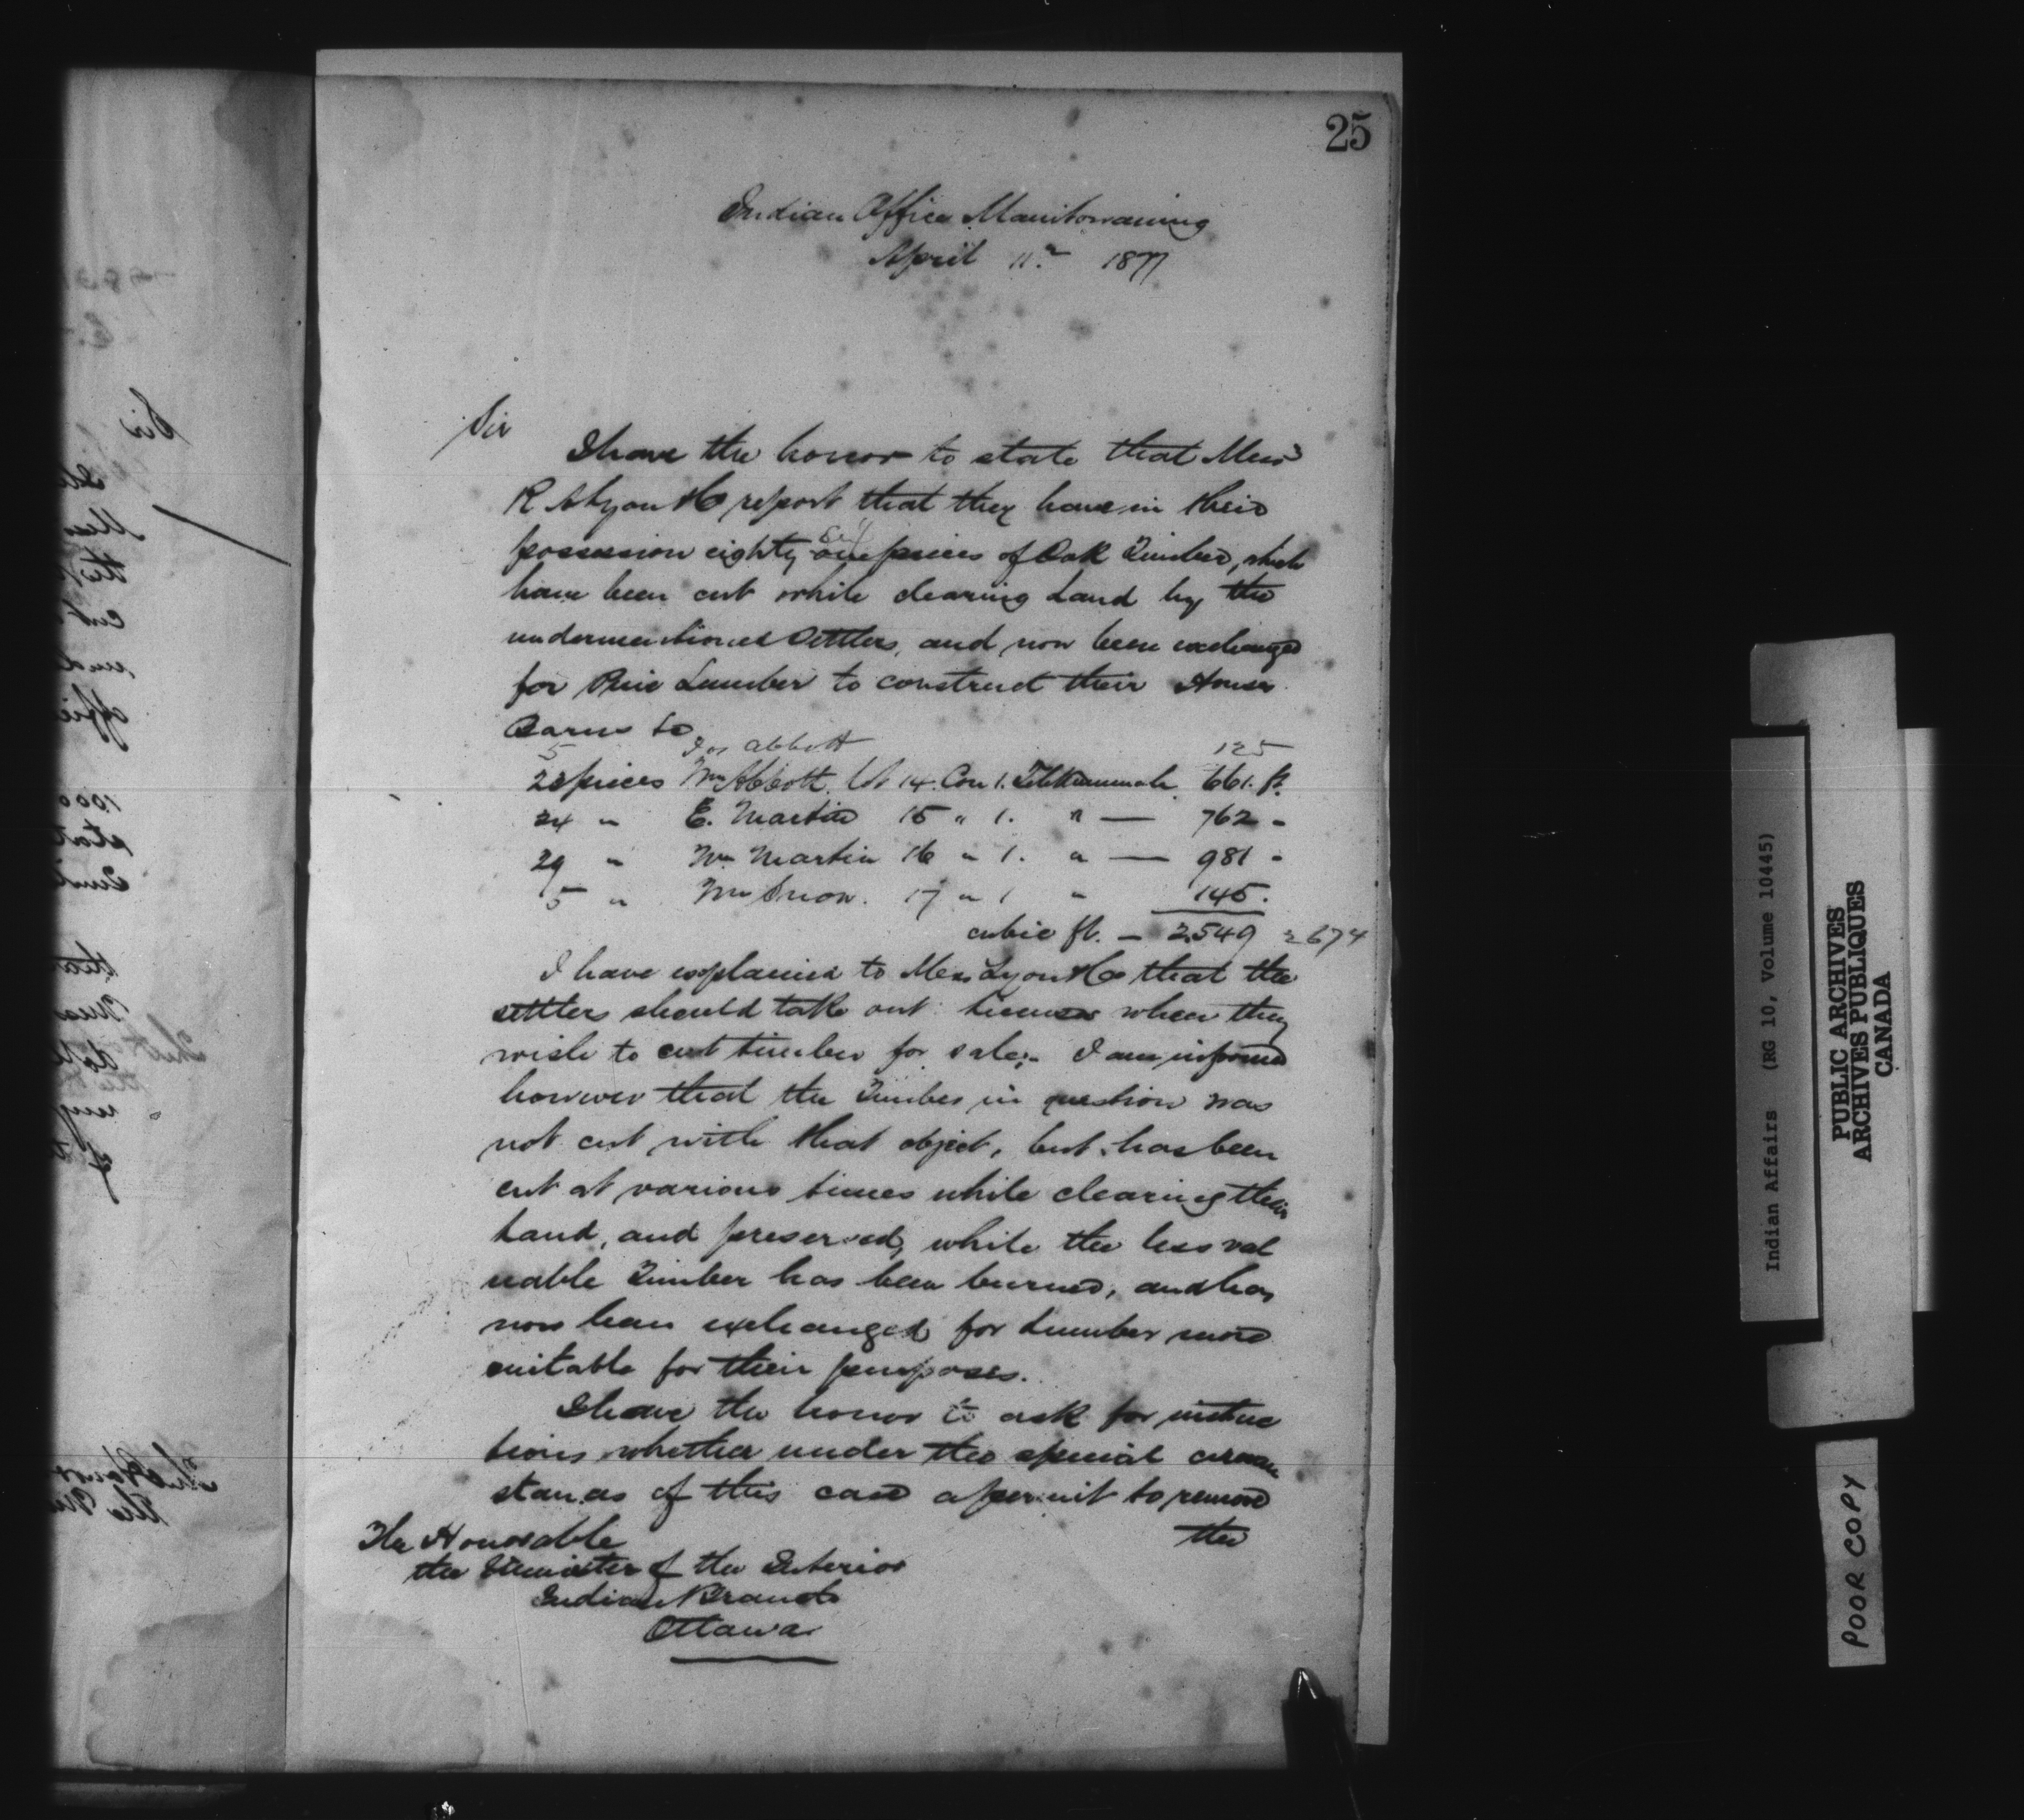 25
Indian Office Manitowaning
April 11th 1877
Sir
I have the honor to state that Mess
R A Lyon & Co report that they have in their
possession eighty six one pieces of Oak Timber, which
have been cut while clearing Land by the
undermentioned Settlers, and now been exchanged
for Pine Lumber to construct their Houses
Barns &c
5 Jos Abbott 125
23 pieces Wm Abbott. Lot 14. Con 1. Tehkummah 661. ft.
24 " E. Martin 15 " 1. " — 762 "
29 " Wm Martin 16 " 1. " — 981 "
5 " Wm 17 " 1 " 145.
cubic ft. — 2549 2674
I have explained to Mess Lyon & Co that the
settlers should take out licenses when they
wish to cut timber for sale;- I am informed
however that the Timber in question was
not cut with that object, but has been
cut at various times while clearing their
Land, and preserved, while the less val
uable Timber has been burned, and has
now been exchanged for Lumber more
suitable for their purposes.
I have the honor to ask for instruc
tions whether under the special circum
stances of this case a permit to remove
the
The Honorable
the Minister of the Interior
Indian Branch
Ottawa
Indian Affairs (RG 10, Volume 10445)
PUBLIC ARCHIVES
ARCHIVES PUBLIQUES
CANADA
POOR COPY